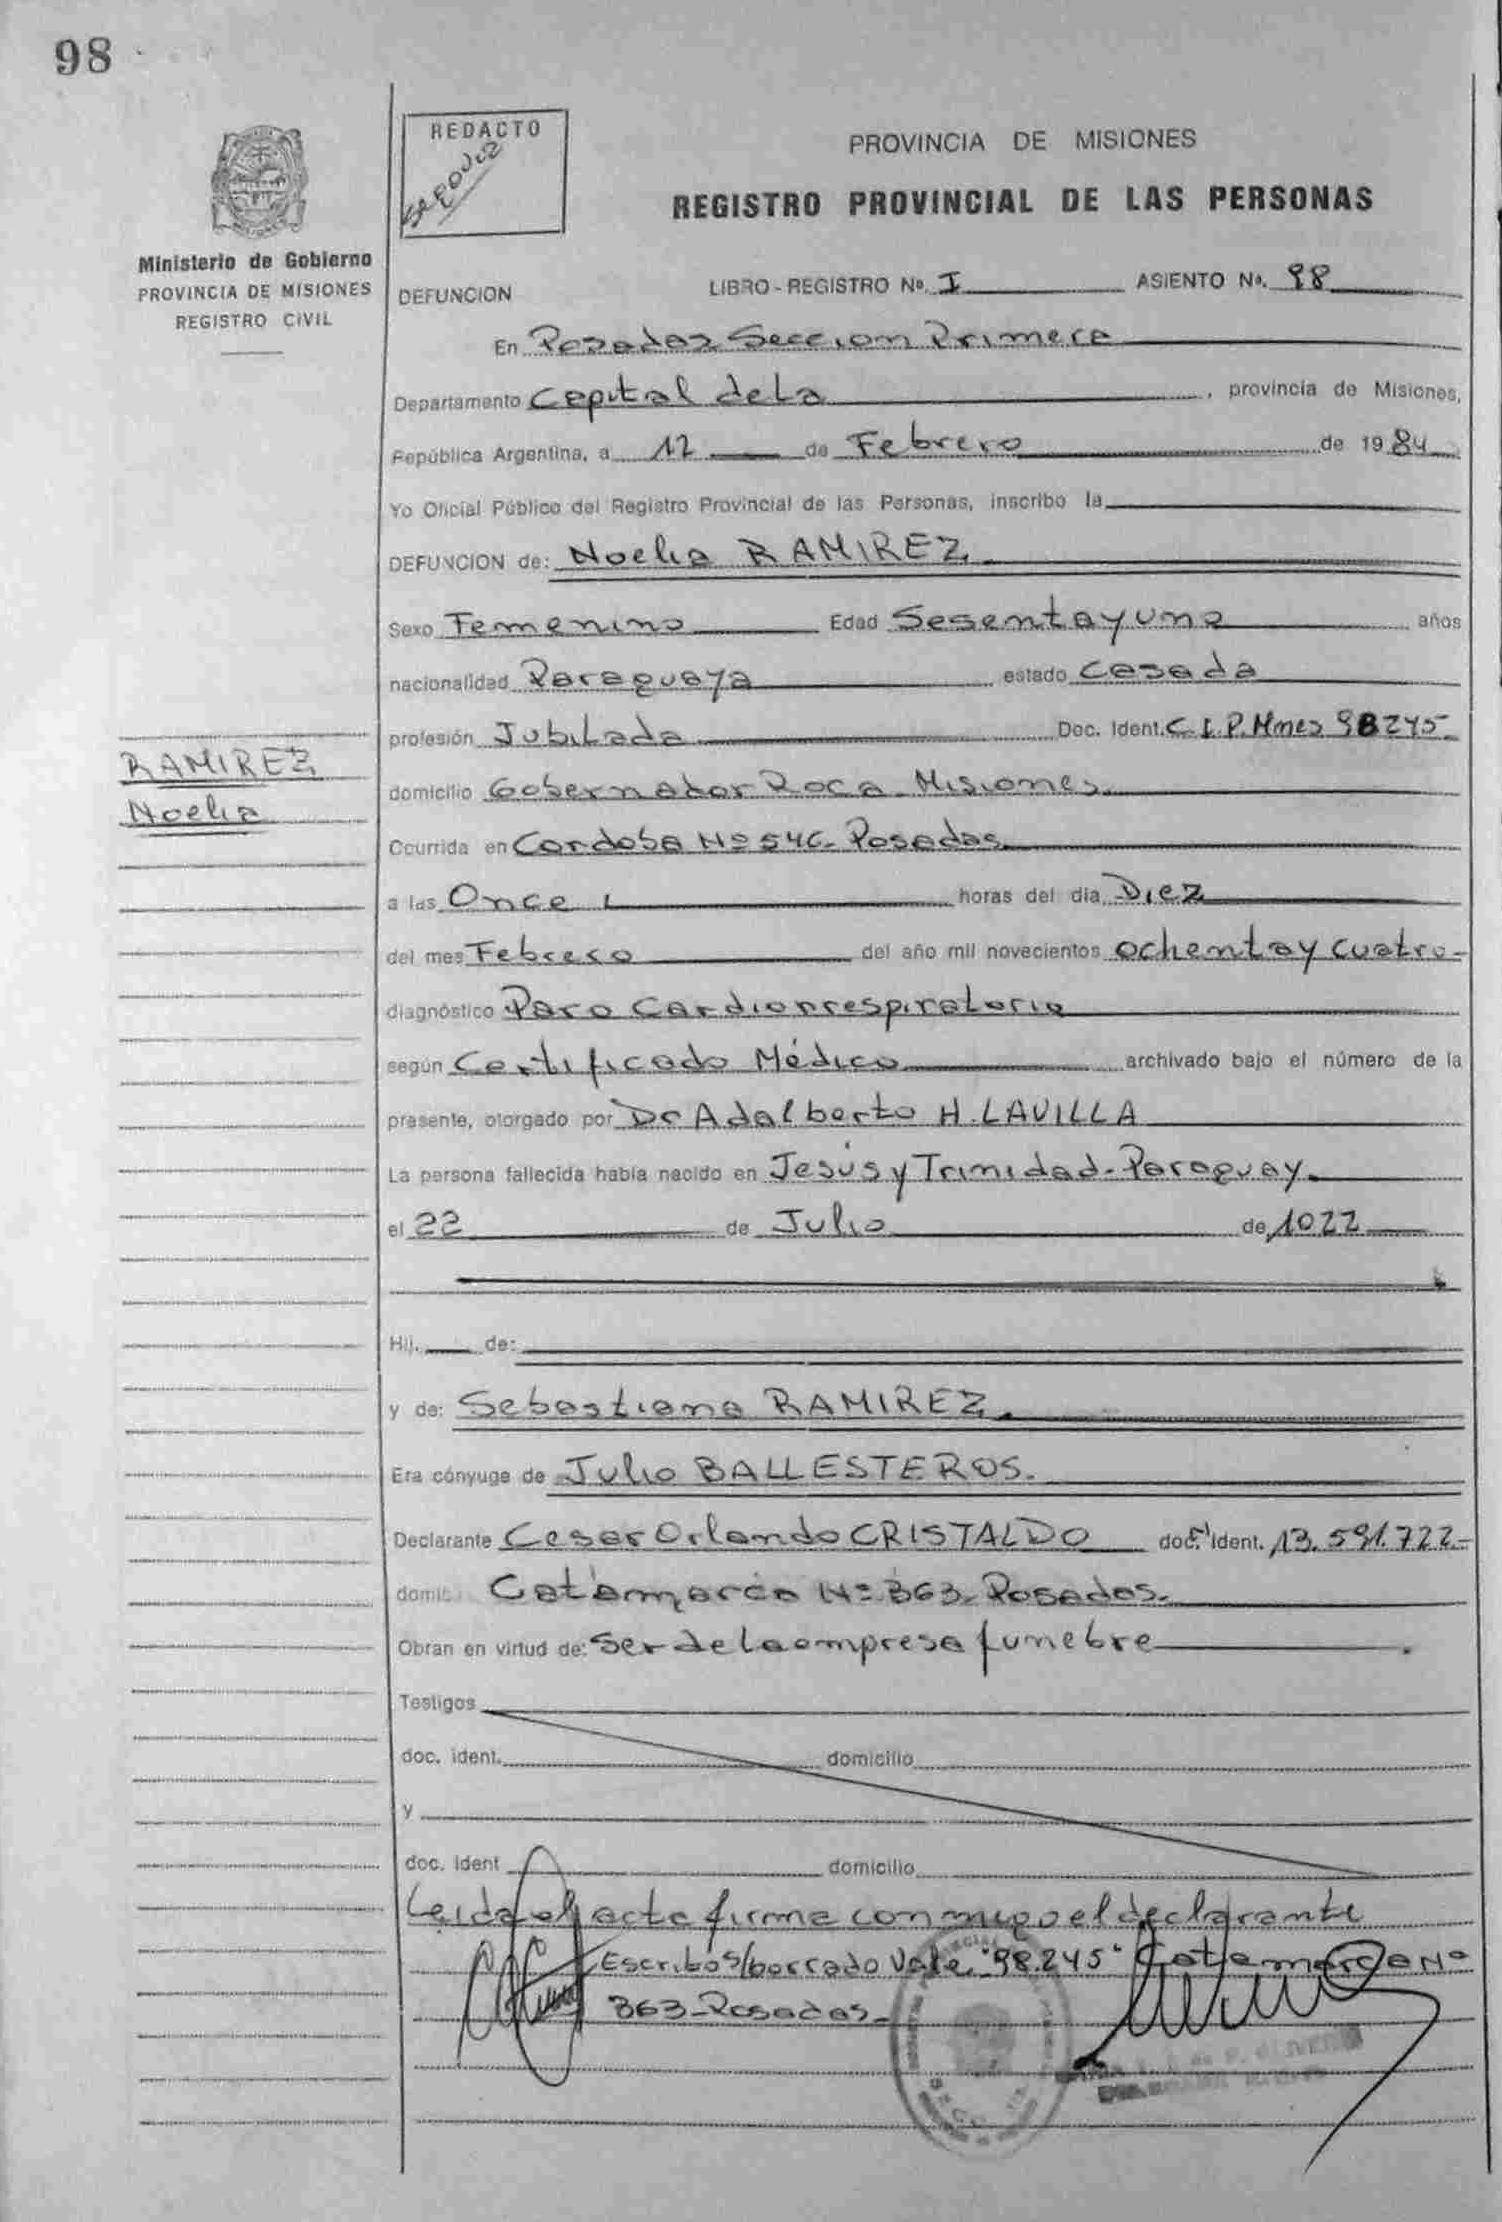 98
REDACTO
PROVINCIA DE MISIONES
REGISTRO PROVINCIAL DE LAS PERSONAS
Ministerio de Gobierno
PROVINCIA DE MISIONES
REGISTRO CIVIL
DEFUNCION LIBRO - REGISTRO No. I ASIENTO No. 98
En Posadas Seccion Primera
Departamento Capital de La, provincia de Misiones,
República Argentina, a 12 de Febrero de 1984
Yo Oficial Público del Registro Provincial de las Personas, inscribo la
DEFUNCION de: Noelia RAMIREZ
Sexo Femenino Edad Sesenta y una años
nacionalidad Paraguaya estado Casada
profesión Jubilada Doc. Ident. C.I.P. Mnes 98245
RAMIREZ
Noelia
domicilio Gobernador Roca - Misiones.
Ocurrida en Cordoba Nº 546 - Posadas
a las Once horas del día Diez
del mes Febrero del año mil novecientos ochenta y cuatro-
diagnóstico Paro Cardiorrespiratorio
según Certificado Médico archivado bajo el número de la
presente, otorgado por Dr Adalberto H. LAVILLA
La persona fallecida había nacido en Jesús y Trinidad - Paraguay.
el 22 de Julio de 1922
Hij. de:
y de: Sebastiana RAMIREZ.
Era cónyuge de Julio BALLESTEROS.
Declarante Cesar Orlando CRISTALDO doc. Ident. 13.591.722.-
domic. Catamarca Nº 363 - Posadas.
Obran en virtud de: Ser de la empresa funebre.
Testigos
doc. ident. domicilio
y
doc. ident domicilio
Leida el acta firma conmigo el declarante
Escribo s/borrado Vale, "98.245" Catamarca Nº
363 - Posadas.-